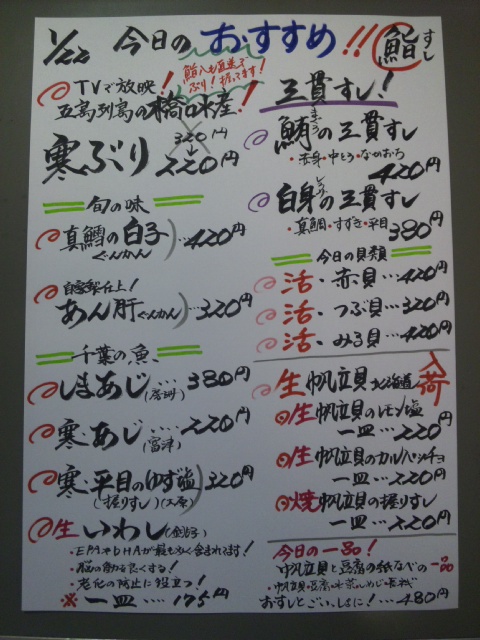 1/22 今日のおすすめ!! 鮨 すし
鮨人も直送で
ぶり!握ってます!
TVで放映!
五島列島の橋口水産!
寒ぶり 320円→220円
旬の味
真鱈の白子(ぐんかん)…420円
自家製仕上!
あん肝(ぐんかん)…320円
千葉の魚
しまあじ……380円
寒あじ……220円
(富津)
寒・平目のゆず塩 320円
(握りすし)
生いわし
・EPAやDHAが最も多く含まれてます!
・脳の働を良くする!
・老化の防止に役立つ!
※一皿……175円
三貫すし!
鮪の三貫すし
まぐろ
・赤身・中とろ・なかおち
420円
白身の三貫すし
・真鯛・すずき・平目
380円
今日の貝類
活・赤貝…420円
活・つぶ貝…320円
活・みる貝…420円
生帆立貝 北海道 入荷
生帆立貝のレモン塩
一皿……220円
生帆立貝のカルパッチョ
一皿……220円
焼帆立貝の握りすし
一皿……220円
今日の一品!
帆立貝と豆腐の紙なべの一品
おすしとごいっしょに!……480円